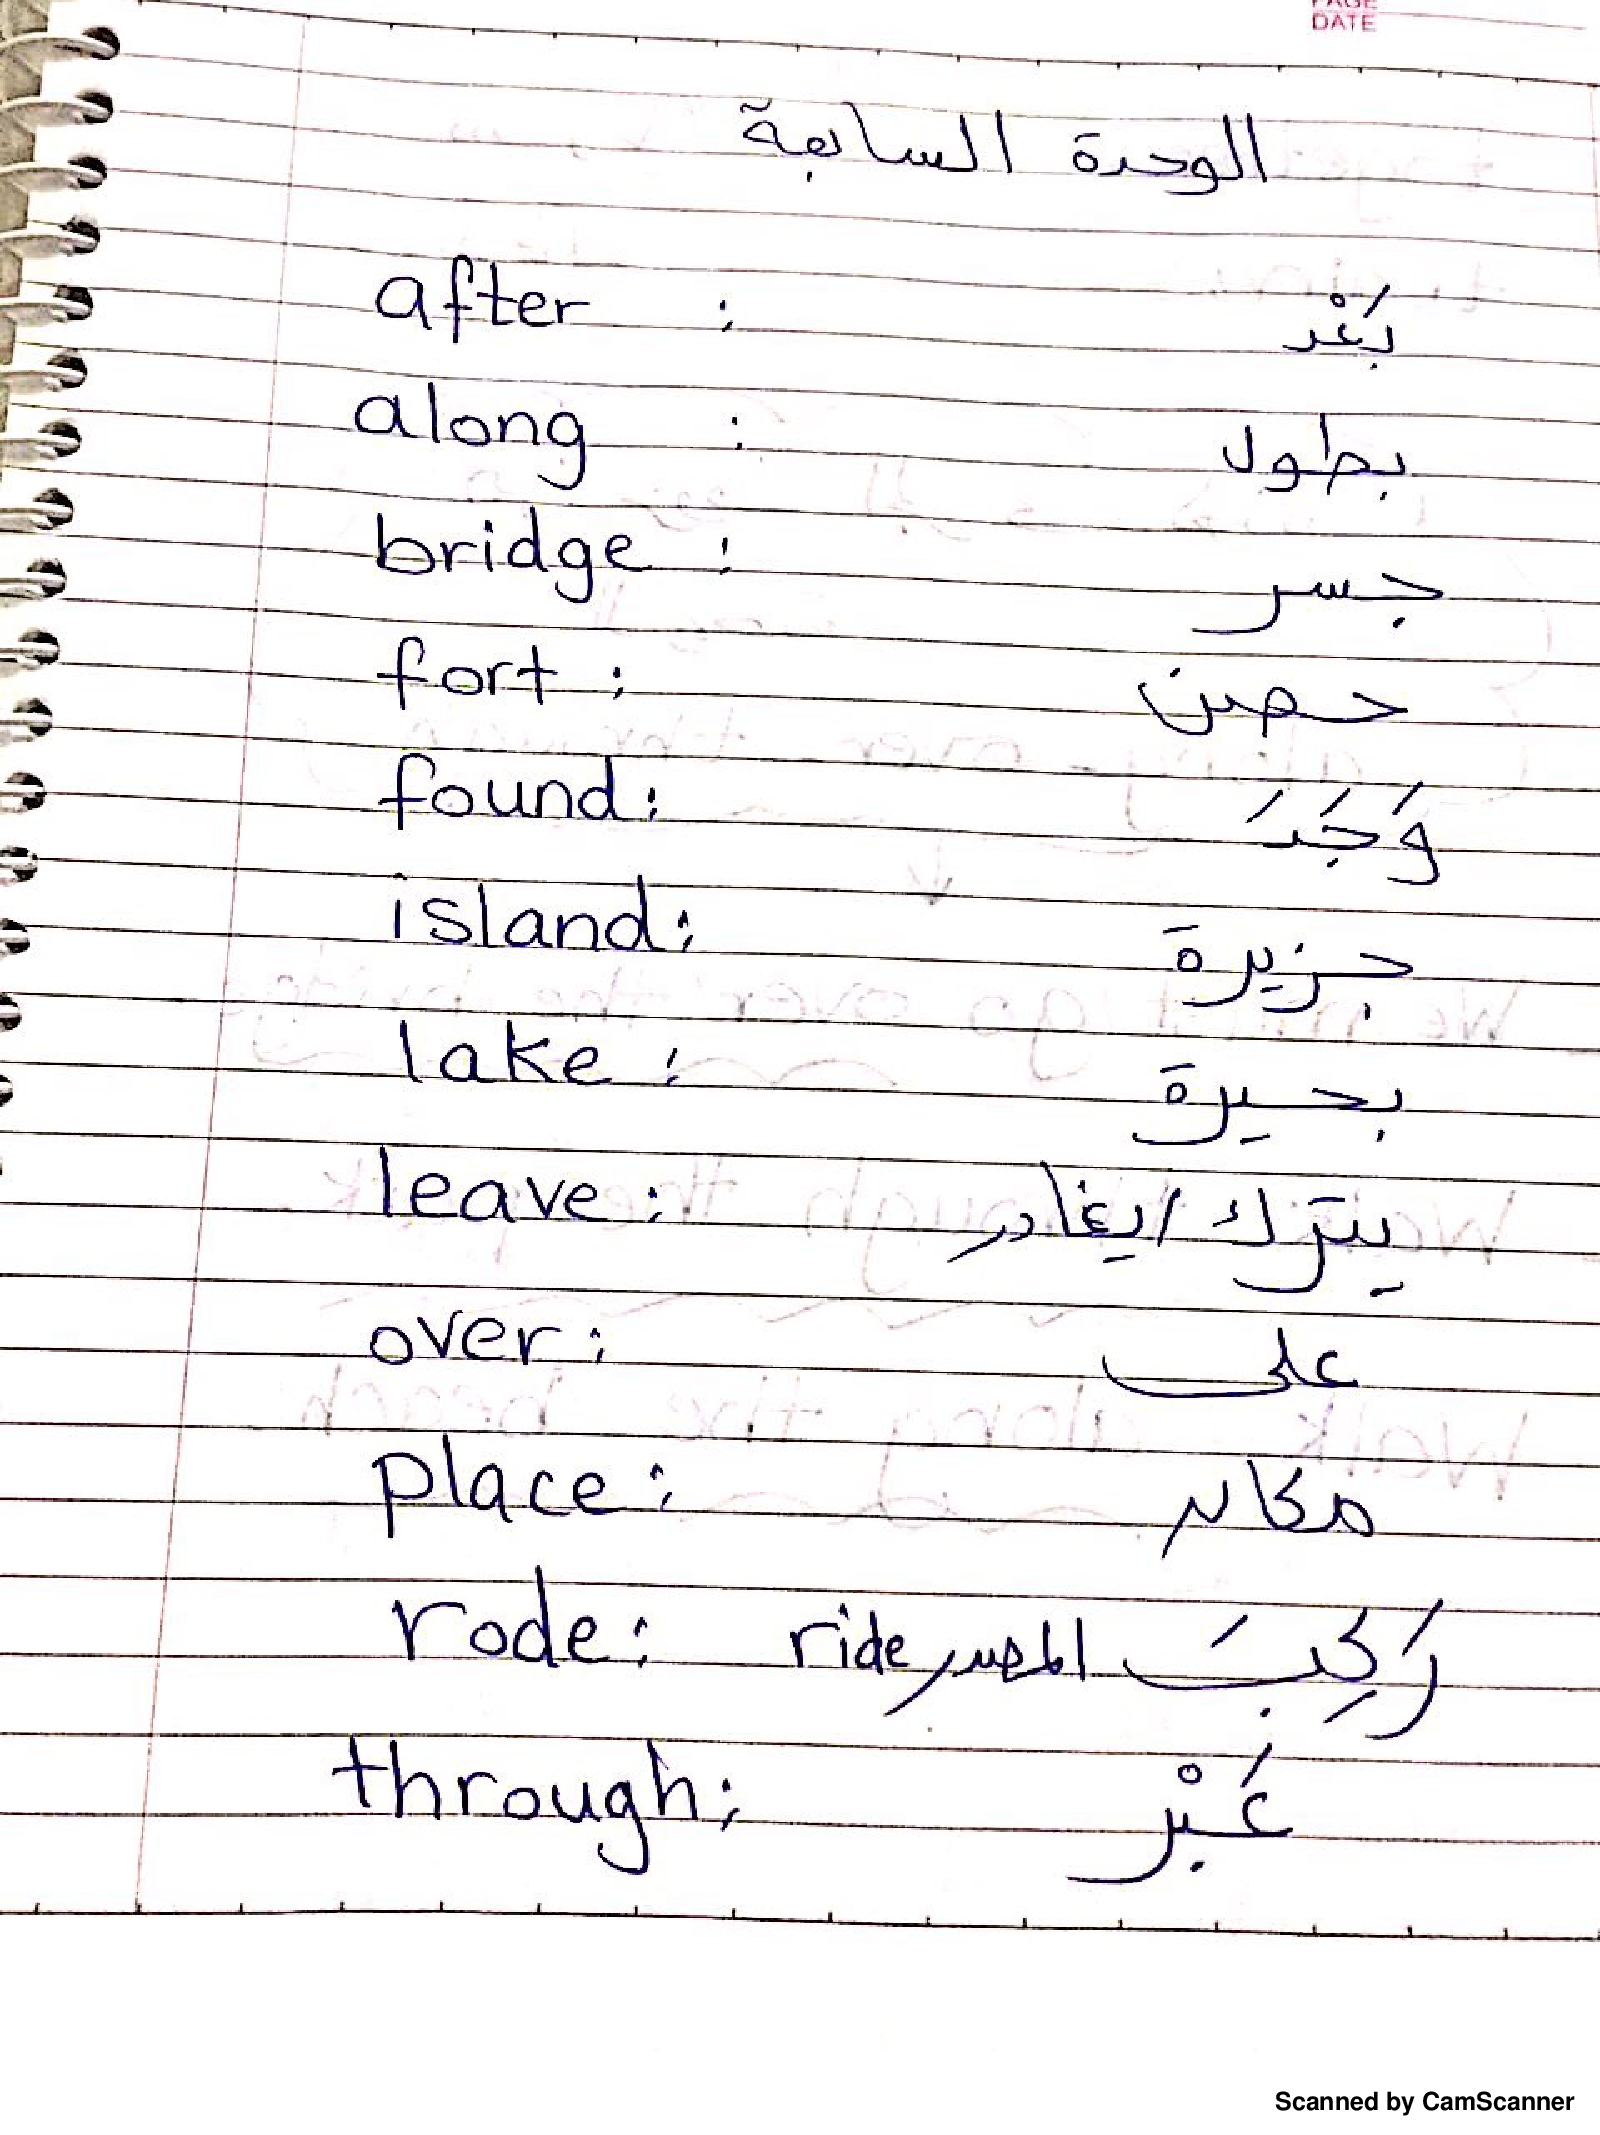 PAGE
DATE
الوحدة السابعة
after : بَعْد
along : بطول
bridge : جسر
fort : حصن
found : وَجَدَ
island : جزيرة
lake : بحيرة
leave : يترك / يغادر
over : على
place : مكان
rode : رَكِبَ المصدر ride
through : عَبْر
Scanned by CamScanner